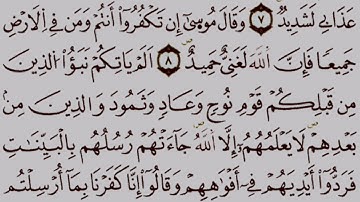 عَذَابِى لَشَدِيدٌ ٧ وَقَالَ مُوسَىٰٓ إِن تَكْفُرُوٓا۟ أَنتُمْ وَمَن فِى ٱلْأَرْضِ
جَمِيعًا فَإِنَّ ٱللَّهَ لَغَنِىٌّ حَمِيدٌ ٨ أَلَمْ يَأْتِكُمْ نَبَؤُا۟ ٱلَّذِينَ
مِن قَبْلِكُمْ قَوْمِ نُوحٍ وَعَادٍ وَثَمُودَ وَٱلَّذِينَ مِنۢ
بَعْدِهِمْ لَا يَعْلَمُهُمْ إِلَّا ٱللَّهُ جَآءَتْهُمْ رُسُلُهُم بِٱلْبَيِّنَٰتِ
فَرَدُّوٓا۟ أَيْدِيَهُمْ فِىٓ أَفْوَٰهِهِمْ وَقَالُوٓا۟ إِنَّا كَفَرْنَا بِمَآ أُرْسِلْتُم